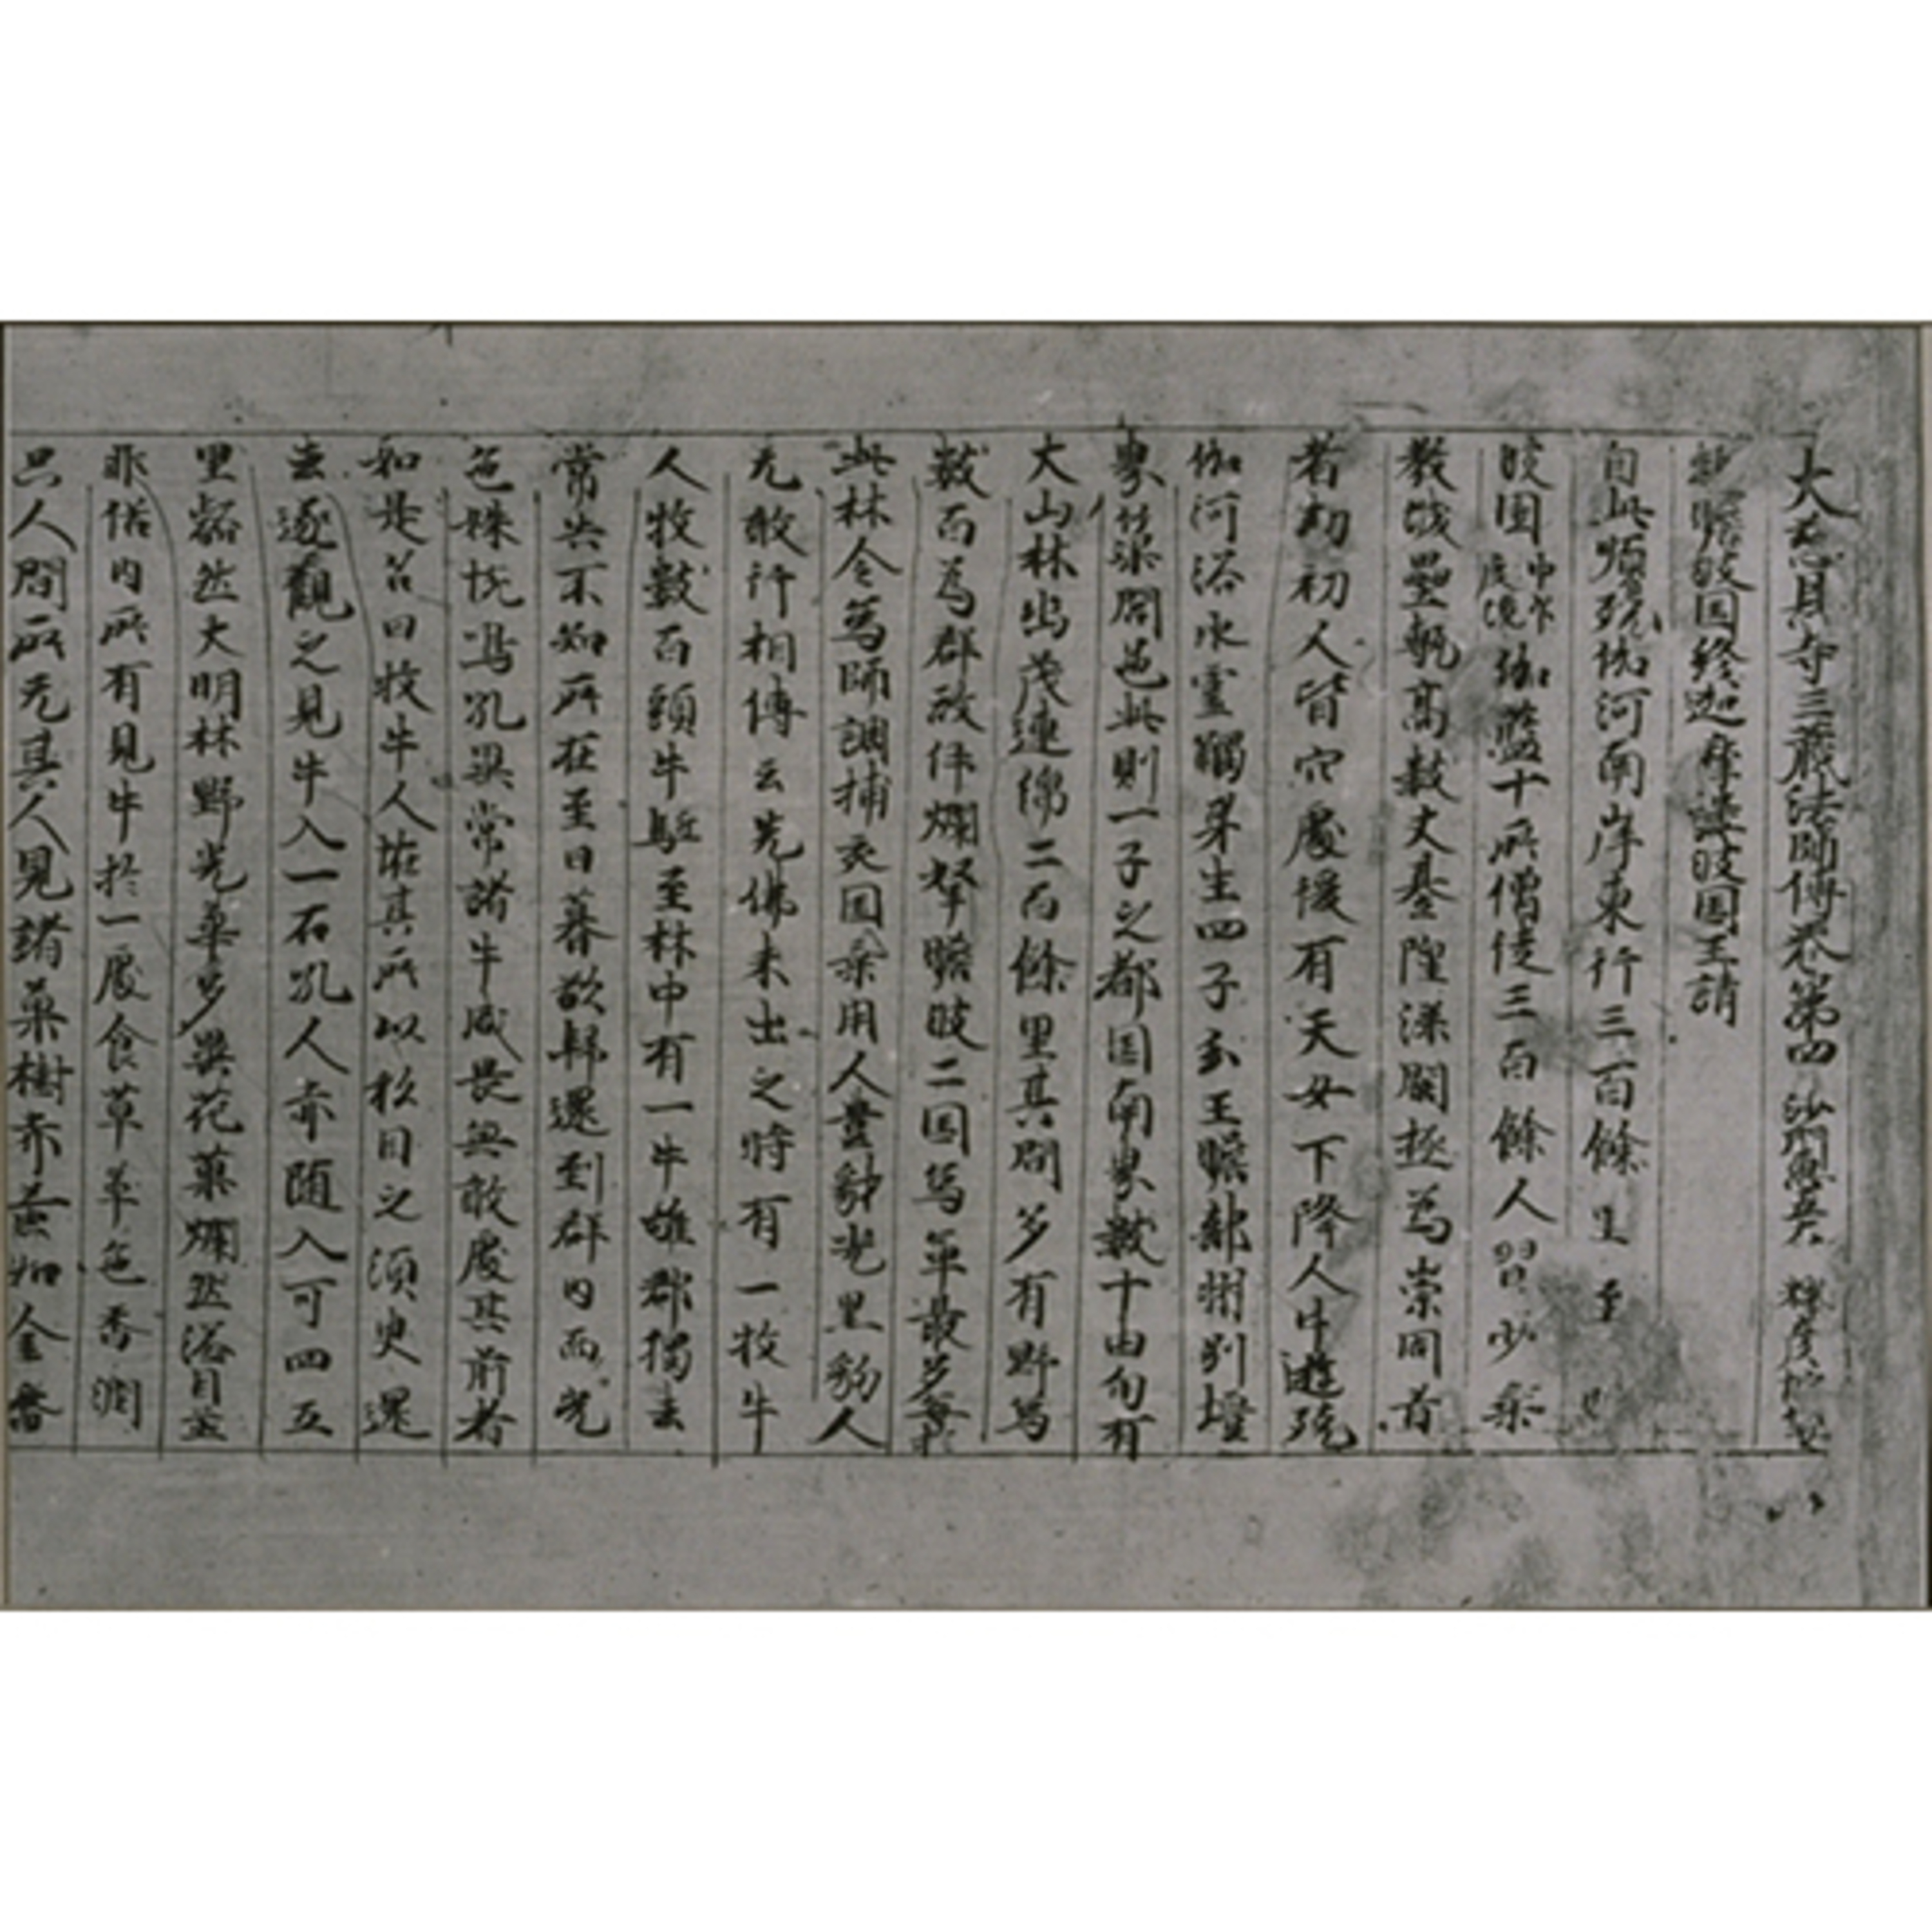 大慈恩寺三藏法師傳卷第四 沙門惠立本 釋彦悰
起瞻波国終迦摩縷波国王請
自此順殑伽河南岸東行三百餘里至
波国中印度境伽藍十所僧徒三百餘人習少乘
教城壘甎高數丈基隍深闊極為崇固昔
者劫初人皆穴處後有天女下降人中遊殑
伽河浴水靈觸身生四子分王贍部州別壃
界築閭邑此則一子之都国南界數十由旬有
大山林幽茂連綿二百餘里其間多有野象
數百為群故伊爛拏瞻波二国象軍最多每於
此林令象師調捕充国乘用人豐豺兕黑豹人
无敢行相傳云先佛未出之時有一牧牛
人牧數百頭牛駈至林中有一牛離群獨去
常失不知所在至日暮欲歸還到群内而光
色姝悅鳴吼異常諸牛咸畏無敢處其前者
如是名曰牧牛人恠其所以私目之須臾還
去逐觀之見牛入一石孔人亦随入可四五
里豁然大明林野光華多異花菓爛然溢目並
非俗内所有見牛於一處食草草色香潤
只人間所无其人見諸菓樹亦黃如金香